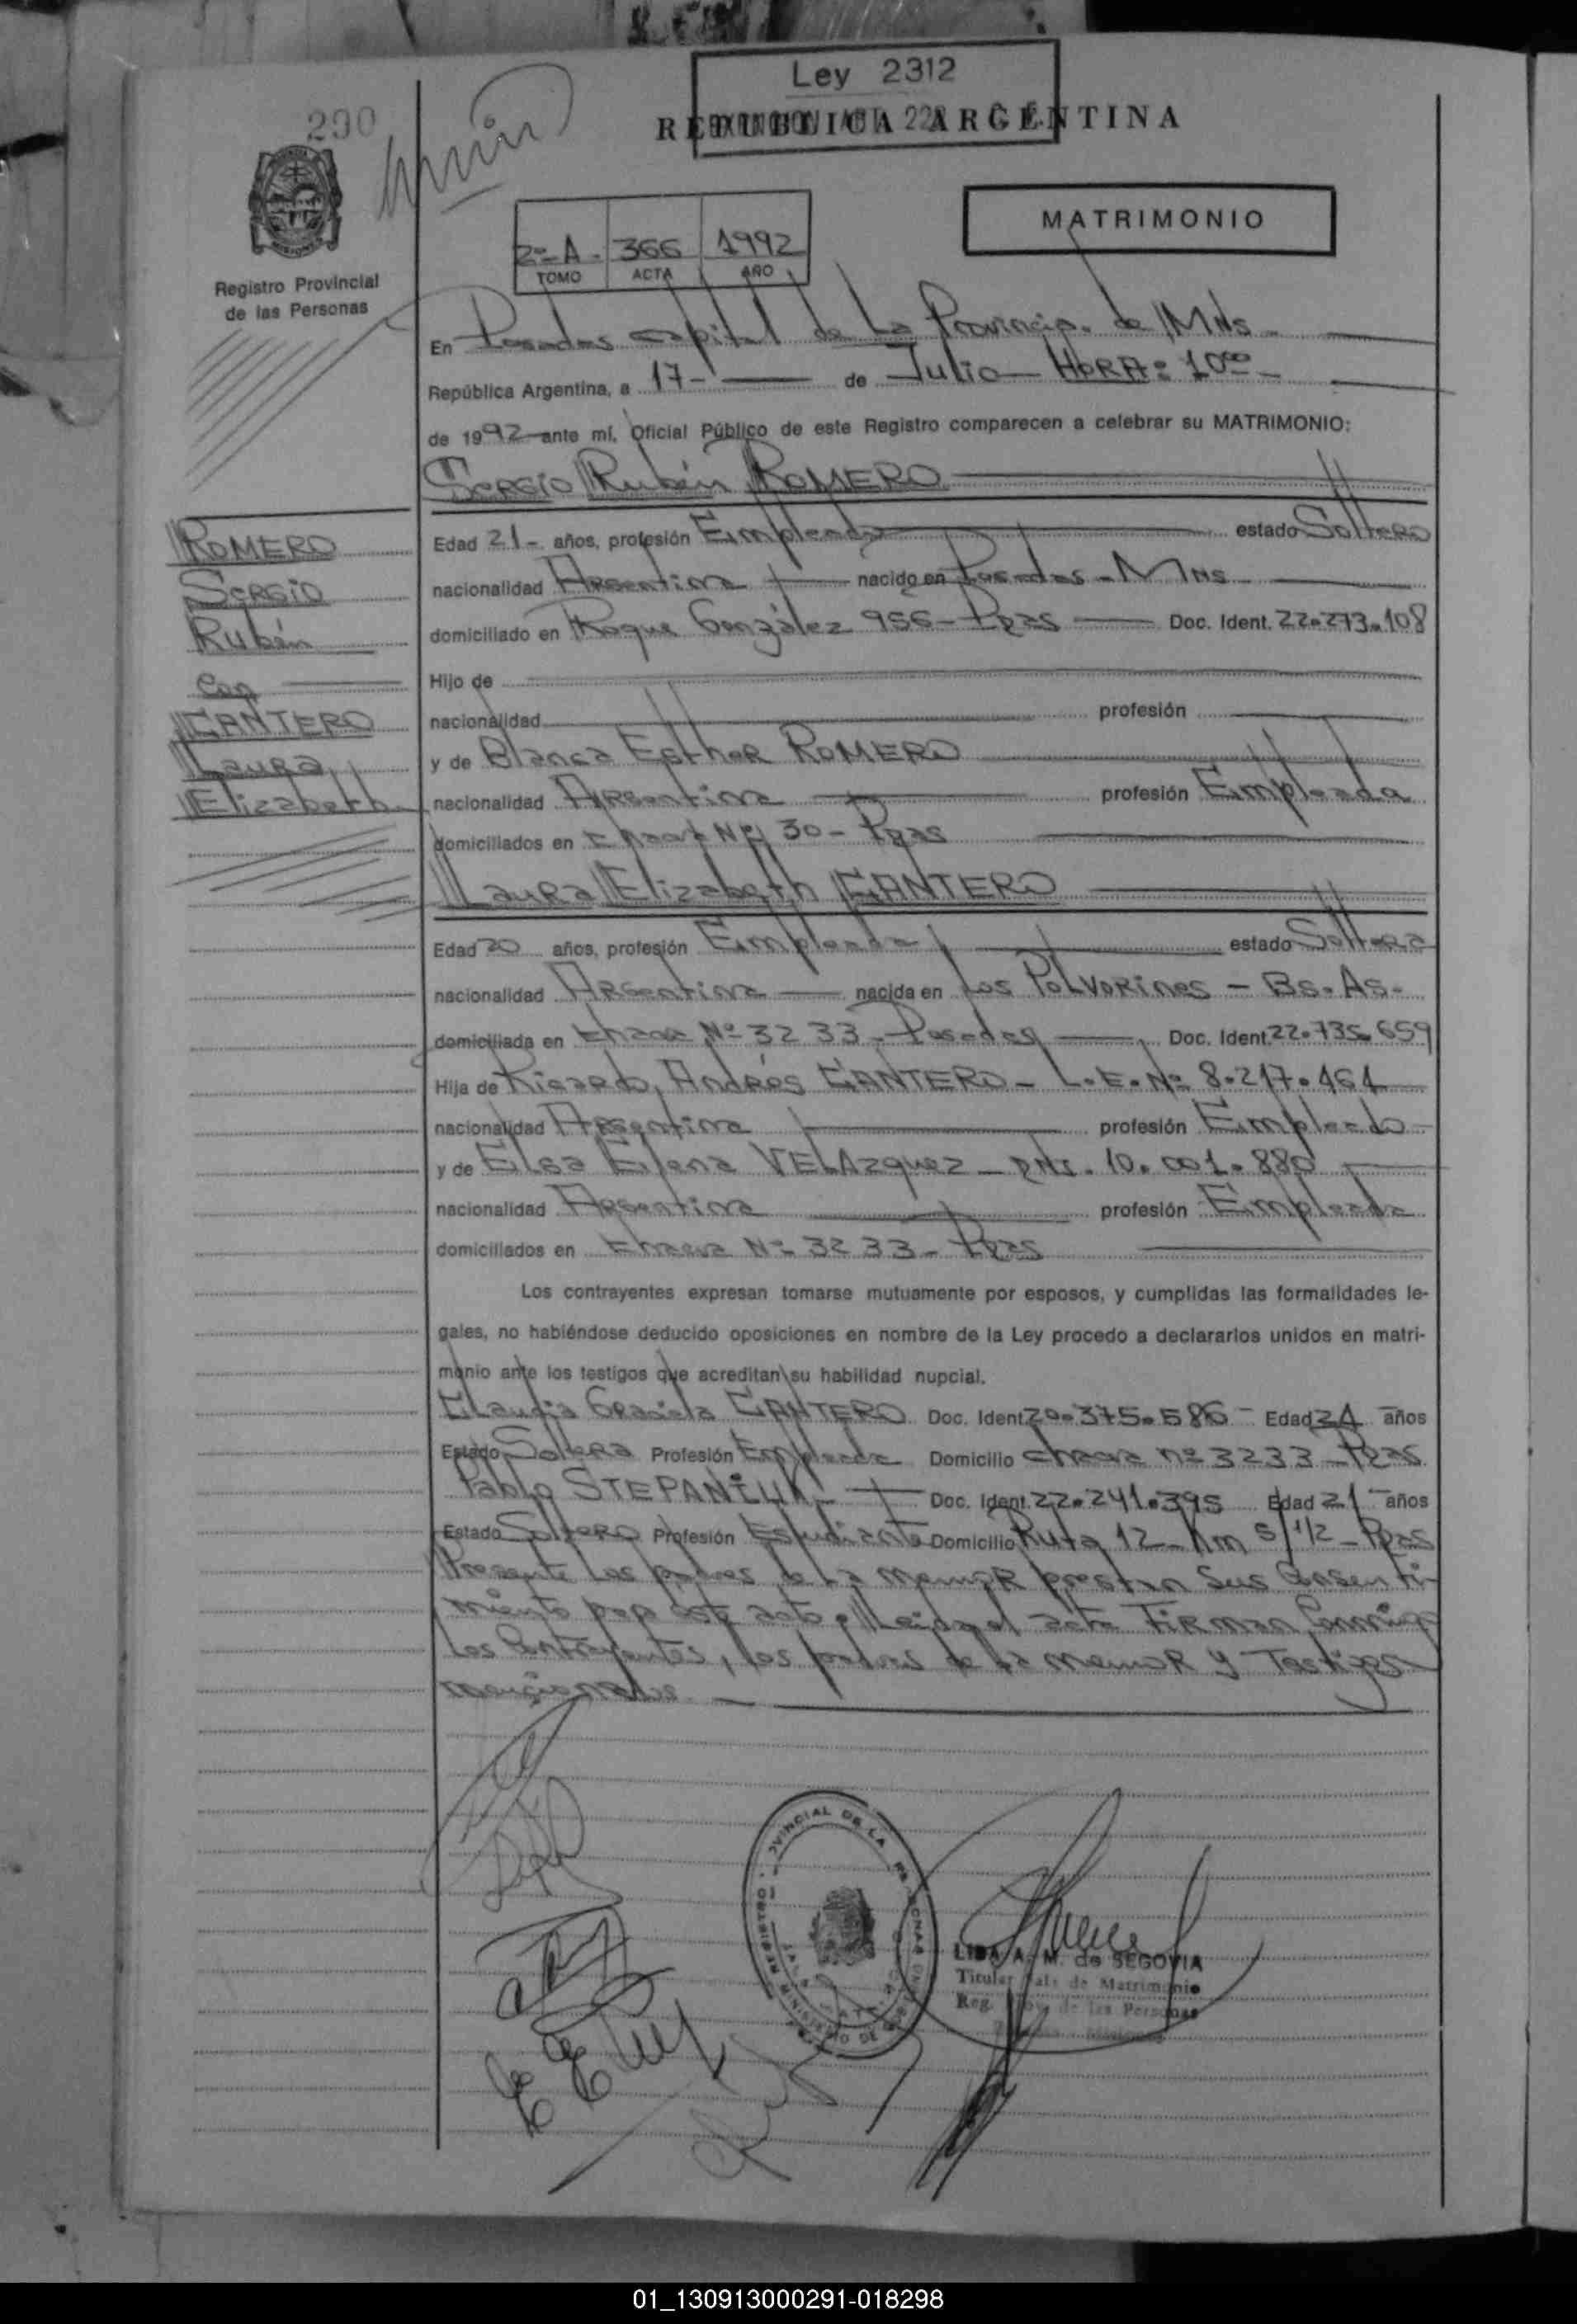 Ley 2312
REPUBLICA ARGENTINA
290
MATRIMONIO
2º A. 366 1992
TOMO ACTA AÑO
Registro Provincial
de las Personas
En Posadas capital de La Provincia de Mns
República Argentina, a 17 - de Julio HORA: 10oo
de 1992 ante mí, Oficial Público de este Registro comparecen a celebrar su MATRIMONIO:
Sergio Rubén ROMERO
ROMERO
Sergio
Rubén
Con
CANTERO
Laura
Elizabeth
Edad 21 - años, profesión Empleado estado Soltero
nacionalidad Argentina nacido en Posadas - Mns
domiciliado en Roque González 956 - Pdas Doc. Ident. 22.273.108
Hijo de
nacionalidad profesión
y de Blanca Esther ROMERO
nacionalidad Argentina profesión Empleada
domiciliados en 30 - Pdas
Laura Elizabeth CANTERO
Edad 20 años, profesión Empleada estado Soltera
nacionalidad Argentina nacida en Los Polvorines - Bs. As.
domiciliada en Nº 3233 - Posadas Doc. Ident. 22.735.659
Hija de Ricardo Andrés CANTERO - L.E. Nº 8.217.464
nacionalidad Argentina profesión Empleado
y de Elsa Elena VELAzquez - DNI. 10.001.880
nacionalidad Argentina profesión Empleada
domiciliados en Nº 3233 - Pdas
Los contrayentes expresan tomarse mutuamente por esposos, y cumplidas las formalidades le-
gales, no habiéndose deducido oposiciones en nombre de la Ley procedo a declararlos unidos en matri-
monio ante los testigos que acreditan su habilidad nupcial.
Claudia Graciela CANTERO Doc. Ident. 20.375.586 - Edad 24 años
Estado Soltera Profesión Empleada Domicilio nº 3233 - Pdas
Pablo STEPANIUK Doc. Ident. 22.241.395 Edad 21 años
Estado Soltero Profesión Estudiante Domicilio Ruta 12 - Km 5 1/2 - Pdas
Presente los padres de la menor prestan sus consenti-
miento por este acto. Leida el acta Firman Conmigo
los Contrayentes, los padres de la menor y Testigos
mencionados.
LIDA A. M. de SEGOVIA
Titular Sala de Matrimonio
Reg. Prov. de las Personas
01_130913000291-018298